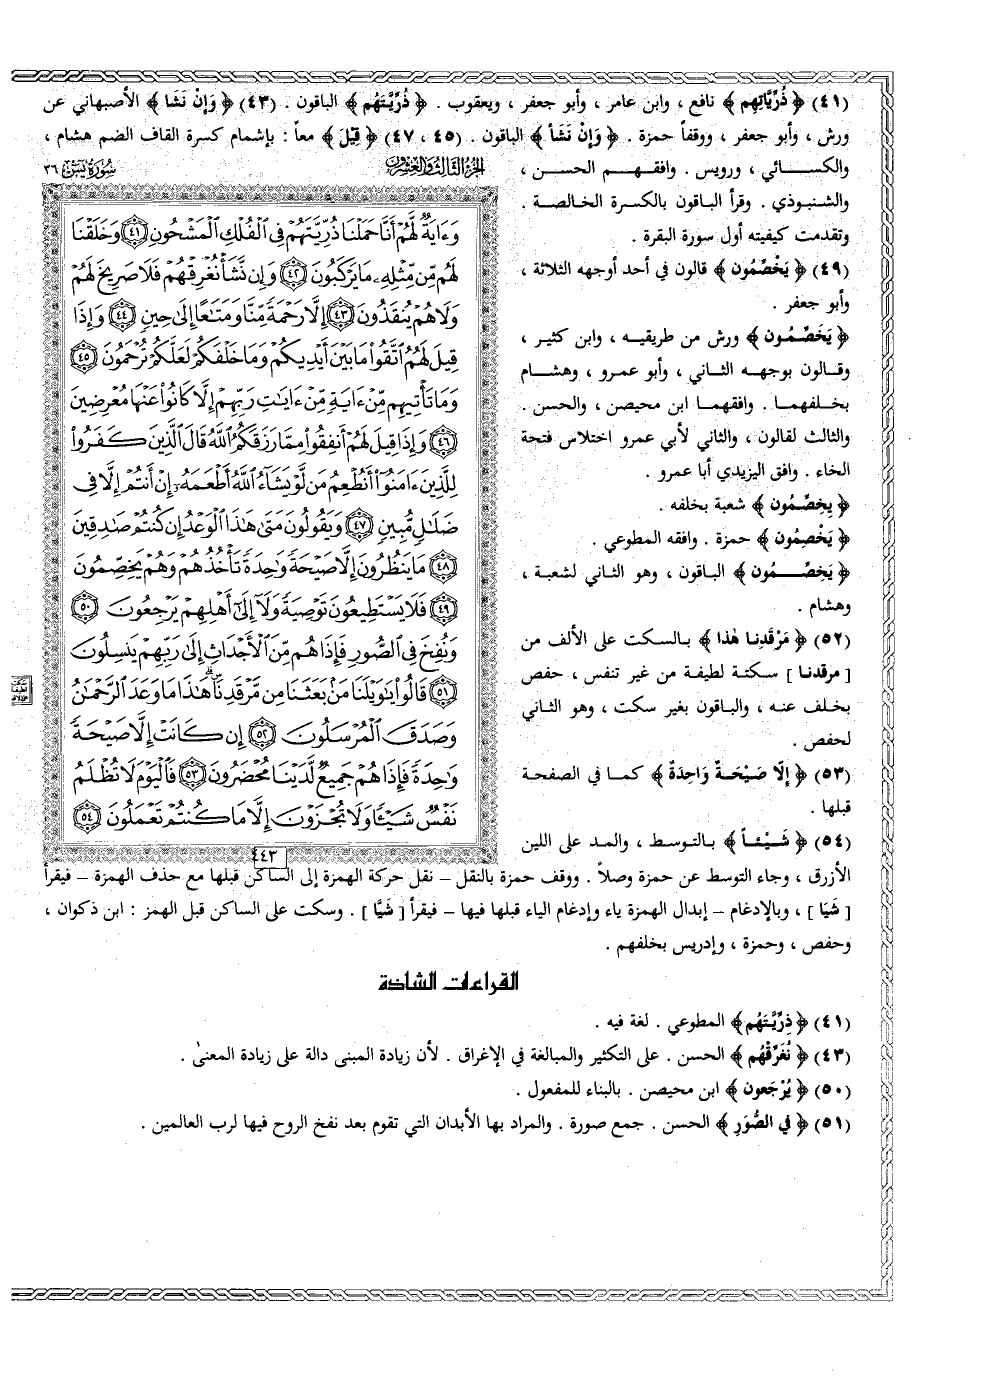 (٤١) ﴿ ذُرِّيَّاتِهِم ﴾ نافع ، وابن عامر ، وأبو جعفر ، ويعقوب . ﴿ ذُرِّيَّتَهُم ﴾ الباقون . (٤٣) ﴿ وَإِنْ نَشَا ﴾ الأصبهاني عن
ورش ، وأبو جعفر ، ووقفاً حمزة . ﴿ وَإِنْ نَشَأ ﴾ الباقون . (٤٥ ، ٤٧) ﴿ قِيلَ ﴾ معاً : بإشمام كسرة القاف الضم هشام ،
والكسائي ، ورويس . وافقهم الحسن ،
والشنبوذي . وقرأ الباقون بالكسرة الخالصة .
وتقدمت كيفيته أول سورة البقرة .
(٤٩) ﴿ يَخْصِّمُون ﴾ قالون في أحد أوجهه الثلاثة ،
وأبو جعفر .
﴿ يَخَصِّمُون ﴾ ورش من طريقيه ، وابن كثير ،
وقالون بوجهه الثاني ، وأبو عمرو ، وهشام
بخلفهما . وافقهما ابن محيصن ، والحسن .
والثالث لقالون ، والثاني لأبي عمرو اختلاس فتحة
الخاء . وافق اليزيدي أبا عمرو .
﴿ يِخِصِّمُون ﴾ شعبة بخلفه .
﴿ يَخْصِمُون ﴾ حمزة . وافقه المطوعي .
﴿ يَخِصِّمُون ﴾ الباقون ، وهو الثاني لشعبة ،
وهشام .
(٥٢) ﴿ مَرْقَدِنا هٰذا ﴾ بالسكت على الألف من
[ مرقدنا ] سكتة لطيفة من غير تنفس ، حفص
بخلف عنه ، والباقون بغير سكت ، وهو الثاني
لحفص .
(٥٣) ﴿ إِلَّا صَيْحَةٌ وَاحِدَةٌ ﴾ كما في الصفحة
قبلها .
(٥٤) ﴿ شَيْئاً ﴾ بالتوسط ، والمد على اللين
الجزء الثالث والعشرون
سورة يس ٣٦
وَءَايَةٌ لَّهُمْ أَنَّا حَمَلْنَا ذُرِّيَّتَهُمْ فِي ٱلْفُلْكِ ٱلْمَشْحُونِ ٤١ وَخَلَقْنَا
لَهُم مِّن مِّثْلِهِۦ مَا يَرْكَبُونَ ٤٢ وَإِن نَّشَأْ نُغْرِقْهُمْ فَلَا صَرِيخَ لَهُمْ
وَلَا هُمْ يُنقَذُونَ ٤٣ إِلَّا رَحْمَةً مِّنَّا وَمَتَٰعًا إِلَىٰ حِينٍ ٤٤ وَإِذَا
قِيلَ لَهُمُ ٱتَّقُوا۟ مَا بَيْنَ أَيْدِيكُمْ وَمَا خَلْفَكُمْ لَعَلَّكُمْ تُرْحَمُونَ ٤٥
وَمَا تَأْتِيهِم مِّنْ ءَايَةٍ مِّنْ ءَايَٰتِ رَبِّهِمْ إِلَّا كَانُوا۟ عَنْهَا مُعْرِضِينَ
٤٦ وَإِذَا قِيلَ لَهُمْ أَنفِقُوا۟ مِمَّا رَزَقَكُمُ ٱللَّهُ قَالَ ٱلَّذِينَ كَفَرُوا۟
لِلَّذِينَ ءَامَنُوٓا۟ أَنُطْعِمُ مَن لَّوْ يَشَآءُ ٱللَّهُ أَطْعَمَهُۥٓ إِنْ أَنتُمْ إِلَّا فِي
ضَلَٰلٍ مُّبِينٍ ٤٧ وَيَقُولُونَ مَتَىٰ هَٰذَا ٱلْوَعْدُ إِن كُنتُمْ صَٰدِقِينَ
٤٨ مَا يَنظُرُونَ إِلَّا صَيْحَةً وَٰحِدَةً تَأْخُذُهُمْ وَهُمْ يَخِصِّمُونَ
٤٩ فَلَا يَسْتَطِيعُونَ تَوْصِيَةً وَلَآ إِلَىٰٓ أَهْلِهِمْ يَرْجِعُونَ ٥٠
وَنُفِخَ فِي ٱلصُّورِ فَإِذَا هُم مِّنَ ٱلْأَجْدَاثِ إِلَىٰ رَبِّهِمْ يَنسِلُونَ
٥١ قَالُوا۟ يَٰوَيْلَنَا مَنۢ بَعَثَنَا مِن مَّرْقَدِنَا ۜ هَٰذَا مَا وَعَدَ ٱلرَّحْمَٰنُ
وَصَدَقَ ٱلْمُرْسَلُونَ ٥٢ إِن كَانَتْ إِلَّا صَيْحَةً
وَٰحِدَةً فَإِذَا هُمْ جَمِيعٌ لَّدَيْنَا مُحْضَرُونَ ٥٣ فَٱلْيَوْمَ لَا تُظْلَمُ
نَفْسٌ شَيْـًٔا وَلَا تُجْزَوْنَ إِلَّا مَا كُنتُمْ تَعْمَلُونَ ٥٤
٤٤٣
الأزرق ، وجاء التوسط عن حمزة وصلاً . ووقف حمزة بالنقل – نقل حركة الهمزة إلى الساكن قبلها مع حذف الهمزة – فيقرأ
[ شَيَا ] ، وبالإدغام – إبدال الهمزة ياء وإدغام الياء قبلها فيها – فيقرأ [ شَيًّا ] . وسكت على الساكن قبل الهمز : ابن ذكوان ،
وحفص ، وحمزة ، وإدريس بخلفهم .
القراءات الشاذة
(٤١) ﴿ ذِرِّيَّتَهُم ﴾ المطوعي . لغة فيه .
(٤٣) ﴿ نُغَرِّقْهُم ﴾ الحسن . على التكثير والمبالغة في الإغراق . لأن زيادة المبنى دالة على زيادة المعنىٰ .
(٥٠) ﴿ يُرْجَعون ﴾ ابن محيصن . بالبناء للمفعول .
(٥١) ﴿ في الصُّوَرِ ﴾ الحسن . جمع صورة . والمراد بها الأبدان التي تقوم بعد نفخ الروح فيها لرب العالمين .